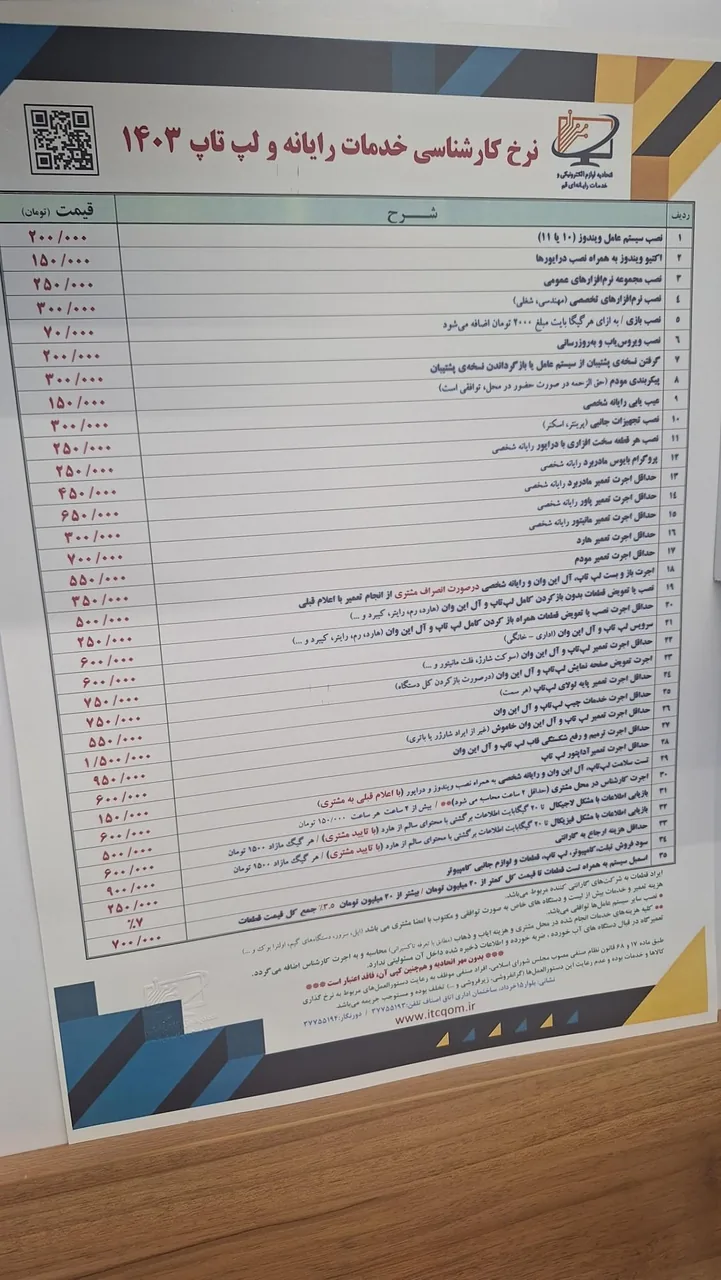 نرخ کارشناسی خدمات رایانه و لپ تاپ ۱۴۰۳
اتحادیه لوازم الکترونیکی و
خدمات رایانه‌ای قم
ردیف شرح قیمت (تومان)
۱ نصب سیستم عامل ویندوز (۱۰ یا ۱۱) ۲۰۰/۰۰۰
۲ اکتیو ویندوز به همراه نصب درایورها ۱۵۰/۰۰۰
۳ نصب مجموعه نرم‌افزارهای عمومی ۲۵۰/۰۰۰
۴ نصب نرم‌افزارهای تخصصی (مهندسی، شغلی) ۳۰۰/۰۰۰
۵ نصب بازی / به ازای هر گیگا بایت مبلغ ۲۰۰۰ تومان اضافه می‌شود ۷۰/۰۰۰
۶ نصب ویروس‌یاب و به‌روزرسانی ۲۰۰/۰۰۰
۷ گرفتن نسخه‌ی پشتیبان از سیستم عامل یا بازگرداندن نسخه‌ی پشتیبان ۳۰۰/۰۰۰
۸ پیکربندی مودم (حق الزحمه در صورت حضور در محل، توافقی است) ۱۵۰/۰۰۰
۹ عیب یابی رایانه شخصی ۳۰۰/۰۰۰
۱۰ نصب تجهیزات جانبی (پرینتر، اسکنر) ۲۵۰/۰۰۰
۱۱ نصب هر قطعه سخت افزاری با درایور رایانه شخصی ۲۵۰/۰۰۰
۱۲ پروگرام بایوس مادربرد رایانه شخصی ۴۵۰/۰۰۰
۱۳ حداقل اجرت تعمیر مادربرد رایانه شخصی ۶۵۰/۰۰۰
۱۴ حداقل اجرت تعمیر پاور رایانه شخصی ۳۰۰/۰۰۰
۱۵ حداقل اجرت تعمیر مانیتور رایانه شخصی ۷۰۰/۰۰۰
۱۶ حداقل اجرت تعمیر هارد ۵۵۰/۰۰۰
۱۷ حداقل اجرت تعمیر مودم ۳۵۰/۰۰۰
۱۸ اجرت باز و بست لپ تاپ، آل این وان و رایانه شخصی درصورت انصراف مشتری از انجام تعمیر با اعلام قبلی ۵۰۰/۰۰۰
۱۹ نصب یا تعویض قطعات بدون بازکردن کامل لپ‌تاپ و آل این وان (هارد، رم، رایتر، کیبرد و ...) ۲۵۰/۰۰۰
۲۰ حداقل اجرت نصب یا تعویض قطعات همراه باز کردن کامل لپ تاپ و آل این وان (هارد، رم، رایتر، کیبرد و ...) ۶۰۰/۰۰۰
۲۱ سرویس لپ تاپ و آل این وان (اداری - خانگی) ۶۰۰/۰۰۰
۲۲ حداقل اجرت تعمیر لپ‌تاپ و آل این وان (سرکت شارژ، فلت مانیتور و ...) ۷۵۰/۰۰۰
۲۳ اجرت تعویض صفحه نمایش لپ‌تاپ و آل این وان (درصورت بازکردن کل دستگاه) ۷۵۰/۰۰۰
۲۴ حداقل اجرت تعمیر پایه لولای لپ‌تاپ (هر سمت) ۵۵۰/۰۰۰
۲۵ حداقل اجرت خدمات چیپ لپ‌تاپ و آل این وان ۱/۵۰۰/۰۰۰
۲۶ حداقل اجرت تعمیر لپ تاپ و آل این وان خاموش (غیر از ایراد شارژر یا باتری) ۹۵۰/۰۰۰
۲۷ حداقل اجرت ترمیم و رفع شکستگی قاب لپ تاپ و آل این وان ۶۰۰/۰۰۰
۲۸ حداقل اجرت تعمیر آداپتور لپ تاپ ۱۵۰/۰۰۰
۲۹ تست سلامت لپ‌تاپ، آل این وان و رایانه شخصی به همراه نصب ویندوز و درایور (با اعلام قبلی به مشتری) ۶۰۰/۰۰۰
۳۰ اجرت کارشناس در محل مشتری (حداقل ۲ ساعت محاسبه می شود)** / بیش از ۲ ساعت هر ساعت ۱۵۰/۰۰۰ تومان ۵۰۰/۰۰۰
۳۱ بازیابی اطلاعات با مشکل لاجیکال تا ۲۰ گیگابایت اطلاعات برگشتی با محتوای سالم از هارد (با تایید مشتری) / هر گیگ مازاد ۱۵۰۰ تومان ۶۰۰/۰۰۰
۳۲ بازیابی اطلاعات با مشکل فیزیکال تا ۲۰ گیگابایت اطلاعات برگشتی با محتوای سالم از هارد (با تایید مشتری) / هر گیگ مازاد ۱۵۰۰ تومان ۹۰۰/۰۰۰
۳۳ حداقل هزینه ارجاع به گارانتی ۲۵۰/۰۰۰
۳۴ سود فروش تبلت، کامپیوتر، لپ تاپ، قطعات و لوازم جانبی کامپیوتر ٪۷
۳۵ اسمبل سیستم به همراه تست قطعات تا قیمت کل کمتر از ۲۰ میلیون تومان / بیشتر از ۲۰ میلیون تومان ۳.۵٪ جمع کل قیمت قطعات ۷۰۰/۰۰۰
ایراد قطعات به شرکت‌های گارانتی کننده مربوط می‌باشد.
هزینه تعمیر و خدمات بیش از لیست و دستگاه های خاص به صورت توافقی و مکتوب با امضا مشتری می باشد (اپل، سرور، دستگاه‌های گیم، اولترا بوک و ...)
* نصب سایر سیستم عامل‌ها توافقی می‌باشد.
** کلیه هزینه‌های خدمات انجام شده در محل مشتری و هزینه ایاب و ذهاب (مطابق با تعرفه تاکسیرانی) محاسبه و به اجرت کارشناس اضافه می‌گردد.
تعمیرگاه در قبال دستگاه های آب خورده ، ضربه خورده و اطلاعات ذخیره شده داخل آن مسئولیتی ندارد.
*** بدون مهر اتحادیه و هم‌چنین کپی آن، فاقد اعتبار است ***
طبق ماده ۱۷ و ۶۸ قانون نظام صنفی مصوب مجلس شورای اسلامی، افراد صنفی موظف به رعایت دستورالعمل‌های مربوط به نرخ گذاری
کالاها و خدمات بوده و عدم رعایت این دستورالعمل‌ها (گرانفروشی، زیرفروشی و ...) تخلف بوده و مستوجب جریمه می‌باشد.
نشانی: بلوار ۱۵خرداد، ساختمان اداری اتاق اصناف تلفن: ۳۷۷۵۵۱۹۳ / دورنگار: ۳۷۷۵۵۱۹۲
www.itcqom.ir